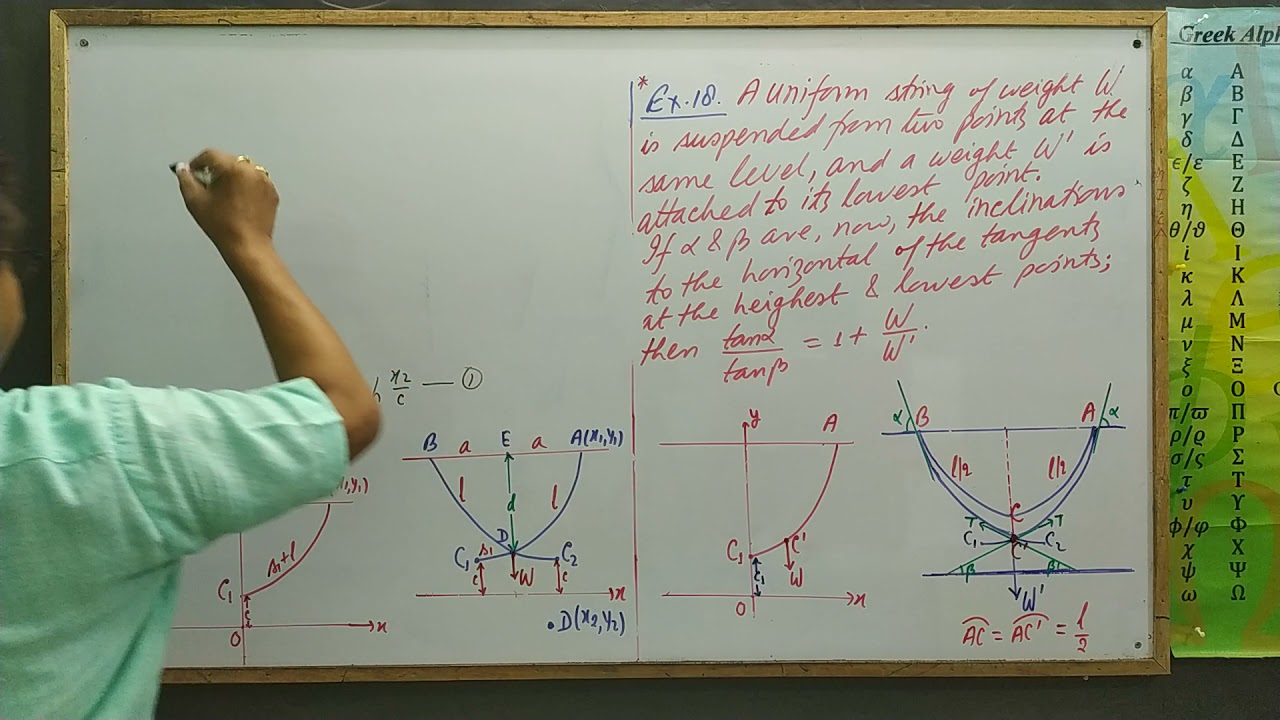 * Ex.18. A uniform string of weight W
is suspended from two points at the
same level, and a weight W' is
attached to its lowest point.
If α & β are, now, the inclinations
to the horizontal of the tangents
at the heighest & lowest points;
then tanα/tanβ = 1 + W/W'.
x₂/c — ①
B a E a A(x₁,y₁)
l l
d
D
C₁ s₁ C₂
c W c
x
.D(x₂,y₂)
,y₁)
s₁+l
C₁
c
O x
y A
C₁ C'
W
c₁
O x
α B A α
l/2 l/2
C
T T
C₁ C' C₂
β β
W'
AC = AC' = l/2
Greek Alph
α A
β B
γ Γ
δ Δ
ϵ/ε E
ζ Z
η H
θ/ϑ Θ
i I
κ K
λ Λ
μ M
ν N
ξ Ξ
o O
π/ϖ Π
ρ/ϱ P
σ/ς Σ
τ T
υ Υ
ϕ/φ Φ
χ X
ψ Ψ
ω Ω